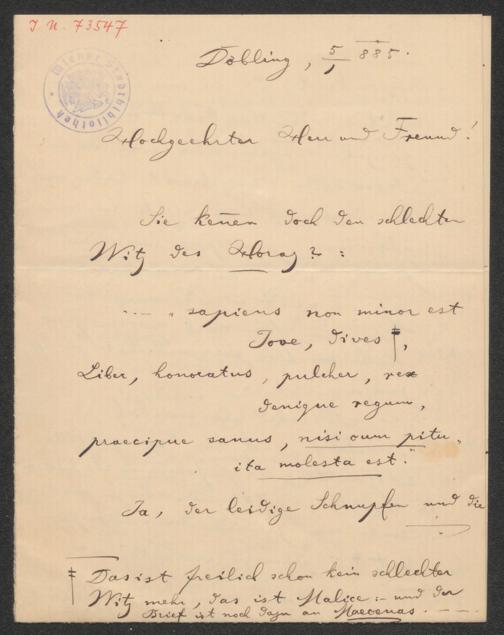 J. N. 73547
Wiener Stadtbibliothek
Döbling, 5/1 885.
Hochgeehrter Herr und Freund!
Sie ken̄en doch den schlechten
Witz des Horaz? :
.... „sapiens non minor est
Jove, dives ‡,
Liber, honoratus, pulcher, rex
denique regum,
praecipue sanus, nisi cum pitu-
ita molesta est."
Ja, der leidige Schnupfen und die
‡ Das ist freilich schon kein schlechter
Witz mehr, das ist Malice :- und der
Brief ist noch dazu an Maecenas. — —